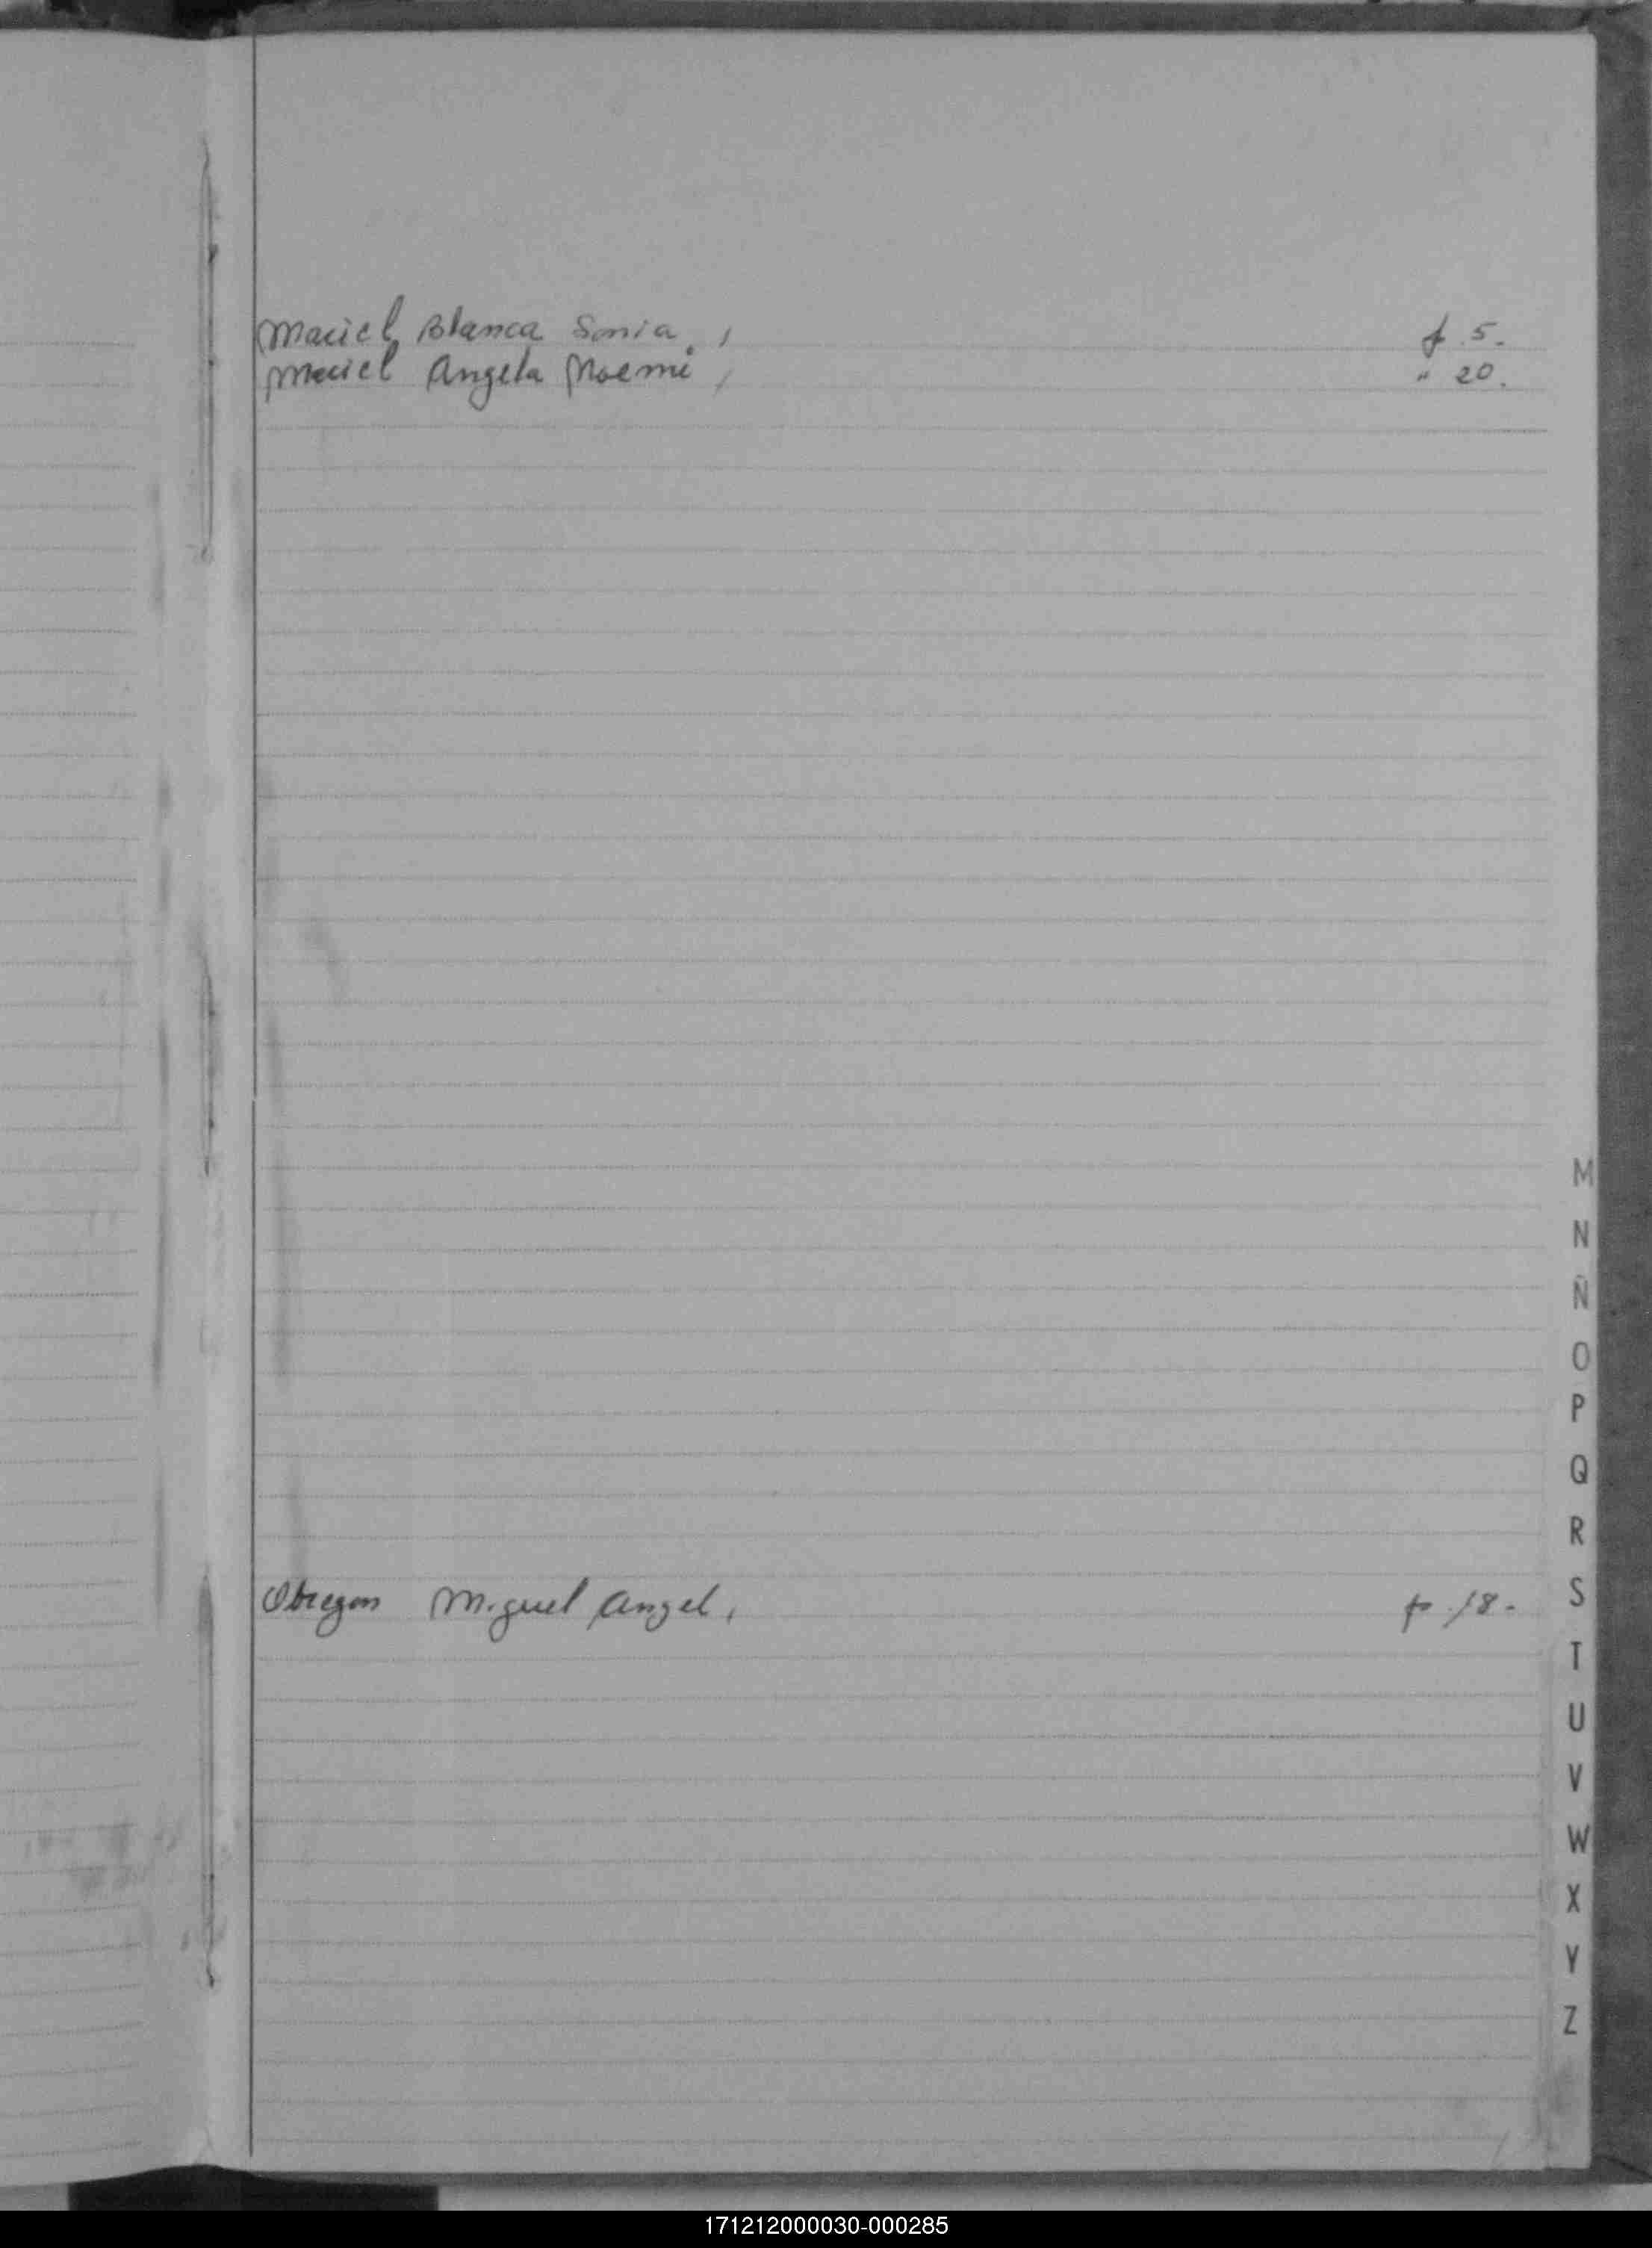 Maciel Blanca Sonia, f. 5.
Maciel Angela Noemi, " 20.
M
N
Ñ
O
P
Q
R
Obregon Miguel Angel, f. 18.
S
T
U
V
W
X
Y
Z
171212000030-000285